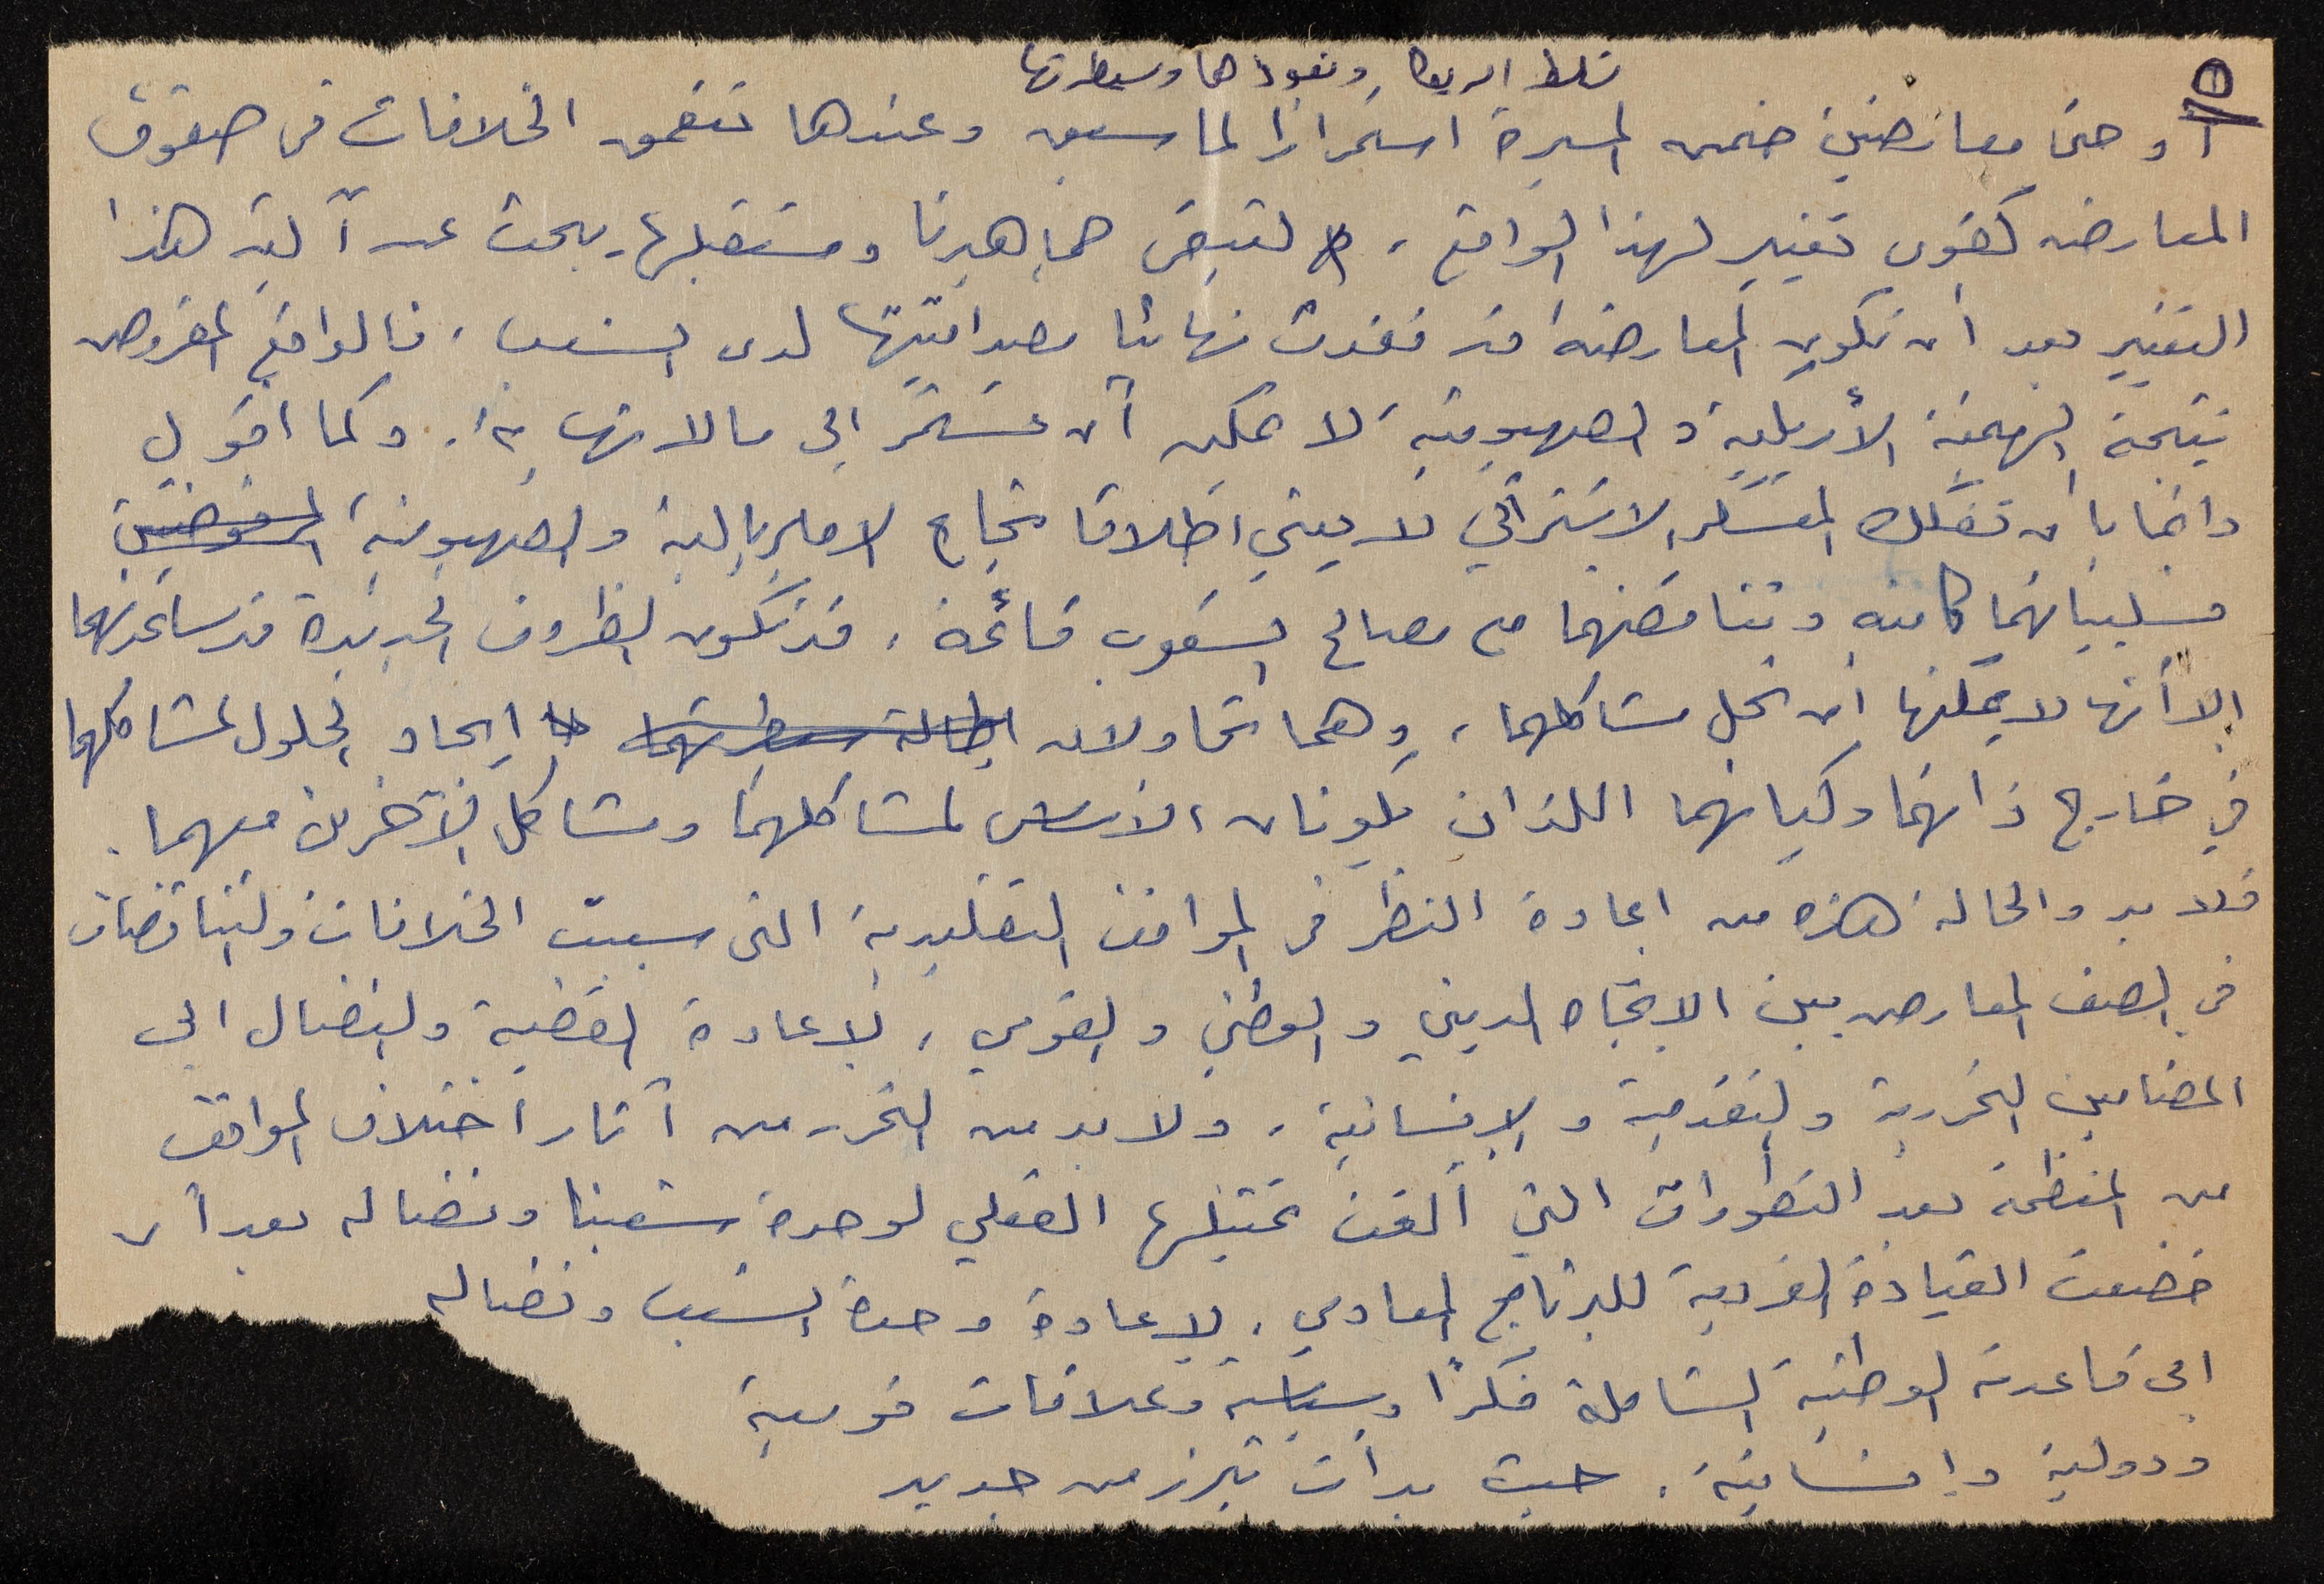 تسلط امريكا ونفوذها وسيطرتها
أو حتى معارضين ضمن المسيرة استمرارا لما سبق وعندها تتعمق الخلافات في صفوف
المعارضه كقوى تغيير لهذا الواقع، لتبقى جماهيرنا ومستقبلها يبحث عن آلية هذا
التغيير بعد أن تكون المعارضة قد فقدت نهائيا مصداقيتها لدى الشعب، فالواقع المفروض
نتيجة الهيمنة الأمريكية والصهيونية لا يمكن أن يستمر الى مالا نهاية. وكما اقول
دائما بأن تفكك المعسكر الاشتراكي لا يعني اطلاقا نجاح الامبريالية والصهيونية
فسلبياتهما كامنه وتناقضهما مع مصالح الشعوب قائمة، قد تكون الظروف الجديدة قد ساعدتهما
الا أنها لا يمكنها ان تحل مشاكلهما، وهما تحاولان اطالة سيطرتهما ايجاد الحلول لمشاكلهما
في خارج ذاتهما وكيانهما اللذان يكونان الاساس لمشاكلهما ومشاكل الآخرين معهما.
فلا بد والحالة هذه من اعادة النظر في المواقف التقليدية التي سببت الخلافات والتناقضات
في الصف المعارض بين الاتجاه الديني والوطني والقومي، لاعادة القضية والنضال الى
المضامين التحررية والتقدمية والإنسانية، ولا بد من التحرر من آثار اختلاف المواقف
من المنظمة بعد التطورات التي ألغت تمثيلها الفعلي لوحدة شعبنا ونضاله بعد أن
خضعت القيادة الفردية للبرنامج المعادي، لاعادة وحدة الشعب ونضاله
الى قاعدته الوطنية الشاملة فكرًا وسياسة وعلاقات قومية
ودولية وإنسانية. حيث بدأت تبرز من جديد